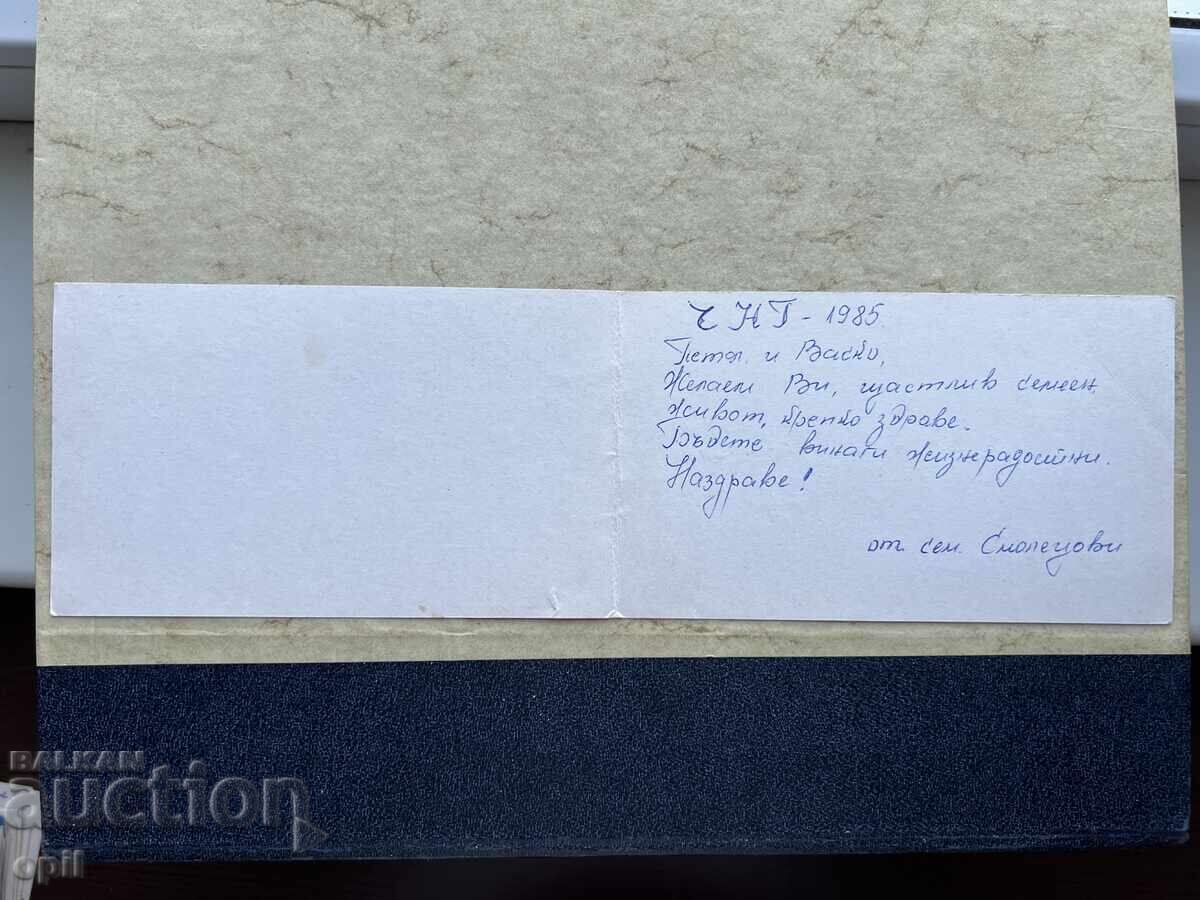 ЧНГ - 1985
и Васко,
Желаем Ви, щастлив семеен
живот, крепко здраве.
Бъдете винаги жизнерадостни.
Наздраве!
от сем. Смолецови
BALKAN
auction
opil